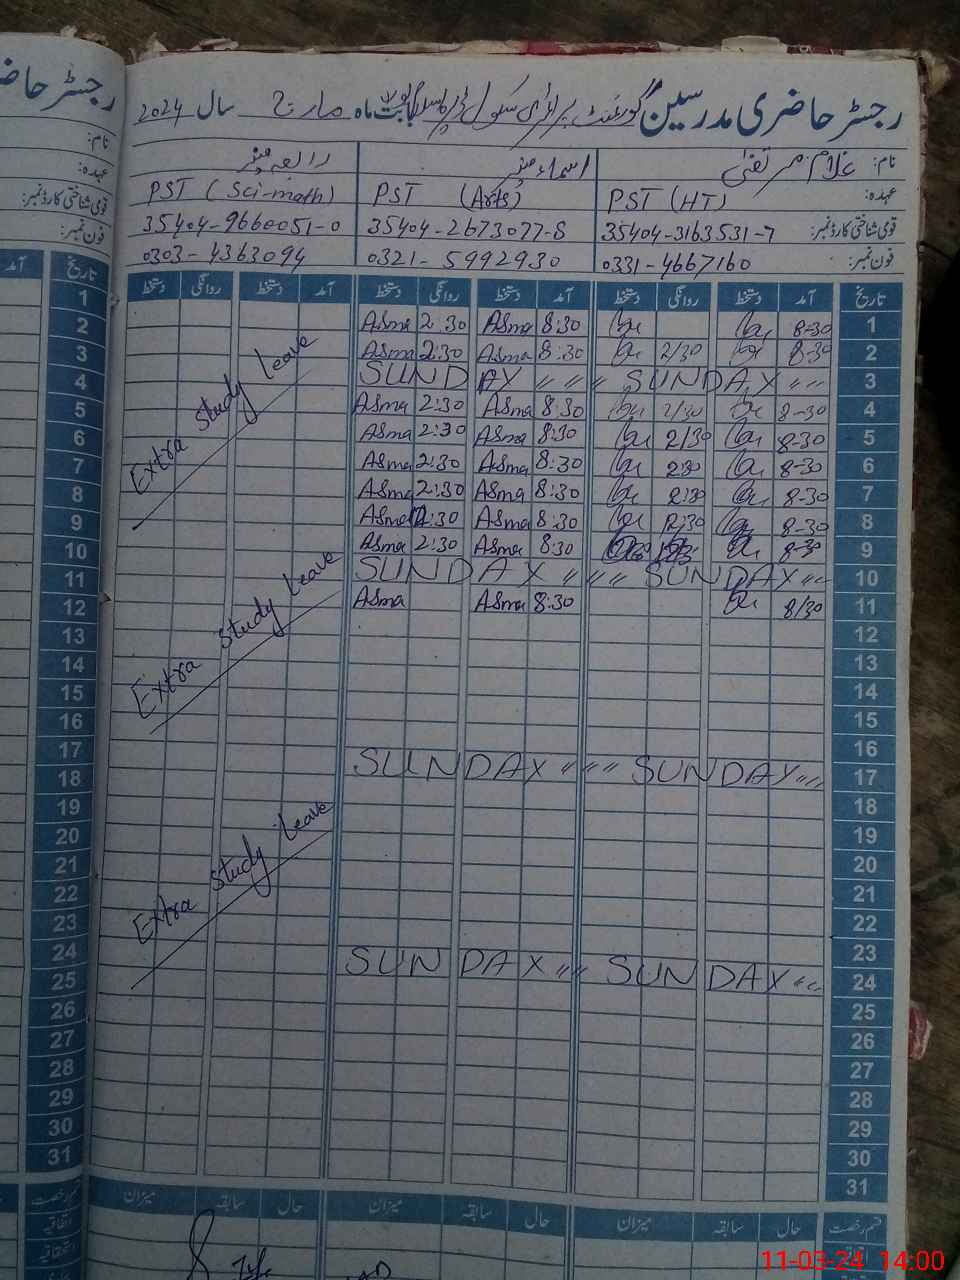 رجسٹر حاضری مدرسین گورنمنٹ پرائمری سکول بابت ماہ مارچ سال 2024
نام: غلام مرتضیٰ اسماء منیر رابعہ منیر
عہدہ: PST (HT) PST (Arts) PST (Sci-math)
قومی شناختی کارڈ نمبر: 35404-3163531-7 35404-2673077-8 35404-9660051-0
فون نمبر: 0331-4667160 0321-5992930 0303-4363094
تاریخ آمد دستخط روانگی دستخط آمد دستخط روانگی دستخط آمد دستخط روانگی دستخط
1 8-30 8:30 Asma 2:30 Asma
2 8-30 2/30 8:30 Asma 2:30 Asma
3 SUNDAY 〃 〃 SUNDAY 〃 〃 〃
4 8-30 2/30 8:30 Asma 2:30 Asma
5 8-30 2/30 8:30 Asma 2:30 Asma
6 8-30 2:30 8:30 Asma 2:30 Asma
7 8-30 2:30 8:30 Asma 2:30 Asma
8 8-30 12:30 8:30 Asma 12:30 Asma
9 8-30 8:30 Asma 2:30 Asma
10 SUNDAY 〃 〃 SUNDAY 〃 〃 〃
11 8/30 8:30 Asma Asma
12
13
14
15
16
17 SUNDAY 〃 〃 SUNDAY 〃 〃 〃
18
19
20
21
22
23
24 SUNDAY 〃 〃 SUNDAY 〃 〃
25
26
27
28
29
30
31
Extra Study Leave
Extra Study Leave
Extra Study Leave
قسم رخصت حال سابقہ میزان حال سابقہ میزان حال سابقہ میزان
اتفاقیہ
رجسٹر حاضری
نام:
عہدہ:
قومی شناختی کارڈ نمبر:
فون نمبر:
تاریخ آمد
1
2
3
4
5
6
7
8
9
10
11
12
13
14
15
16
17
18
19
20
21
22
23
24
25
26
27
28
29
30
31
قسم رخصت
اتفاقیہ
استحقاقیہ
11-03-24 14:00